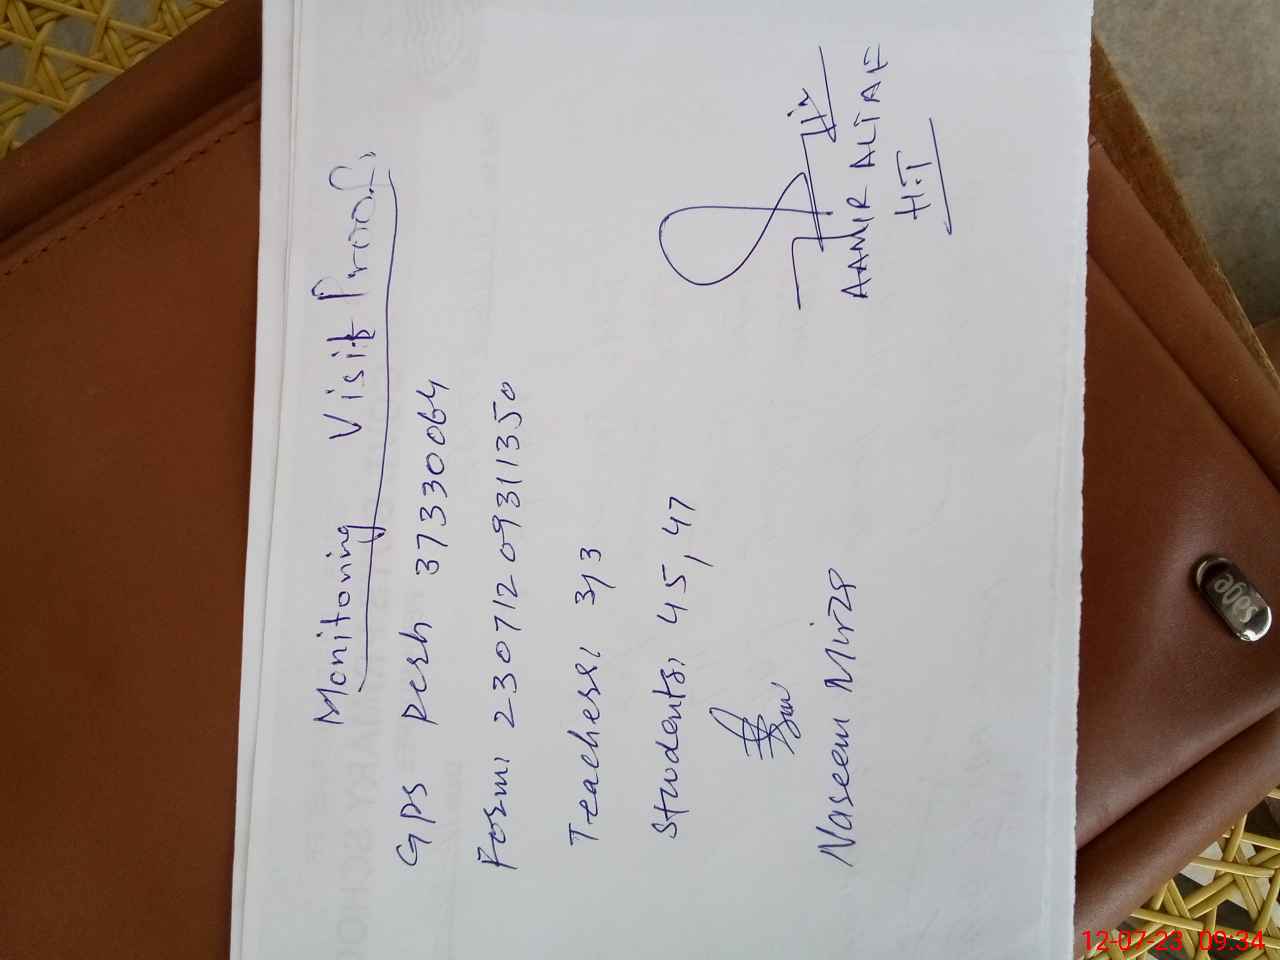 Monitoring Visit Proof:
GPS Pesh 37330064
Form: 230712 0931 1350
Teachers: 3/3
Students: 45, 47
Naseem Mirza
AAMIR ALTAF
H.T
sage
12-07-23 09:34